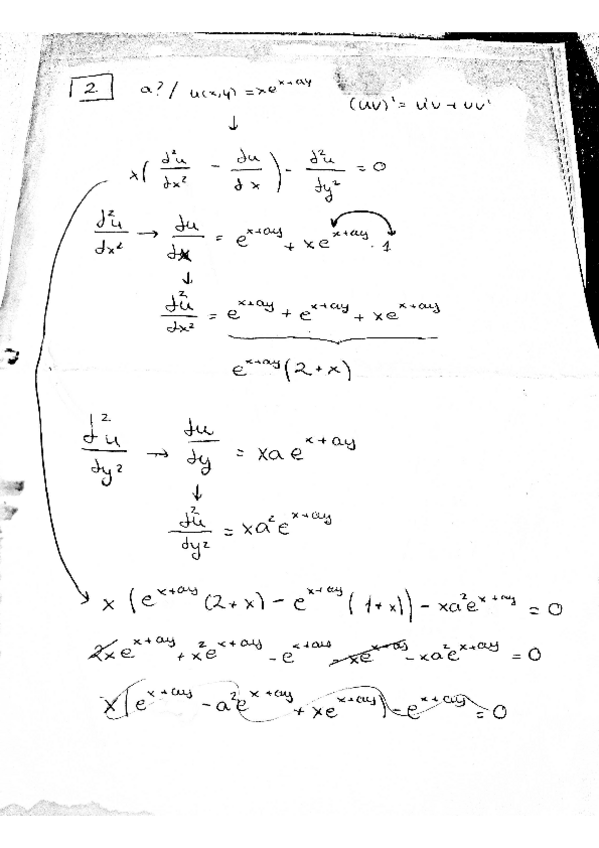 2 a? / u(x,y) = xe^(x+ay) (uv)' = u'v + uv'
↓
x( d²u/dx² - du/dx ) - d²u/dy² = 0
d²u/dx² → du/dx = e^(x+ay) + xe^(x+ay) · 1
↓
d²u/dx² = e^(x+ay) + e^(x+ay) + xe^(x+ay)
e^(x+ay) (2+x)
d²u/dy² → du/dy = xa e^(x+ay)
↓
d²u/dy² = xa²e^(x+ay)
x (e^(x+ay) (2+x) - e^(x+ay) (1+x)) - xa²e^(x+ay) = 0
2xe^(x+ay) + x²e^(x+ay) - e^(x+ay) - xe^(x+ay) - xa²e^(x+ay) = 0
x(e^(x+ay) - a²e^(x+ay) + xe^(x+ay)) - e^(x+ay) = 0